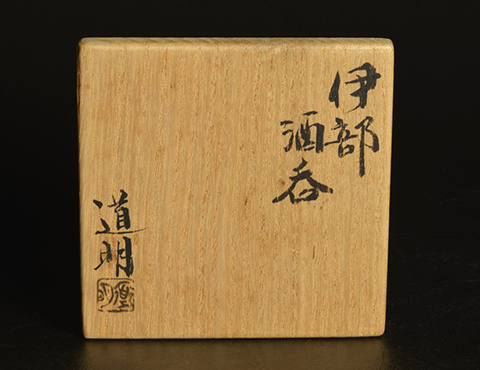 伊部
酒呑
道明